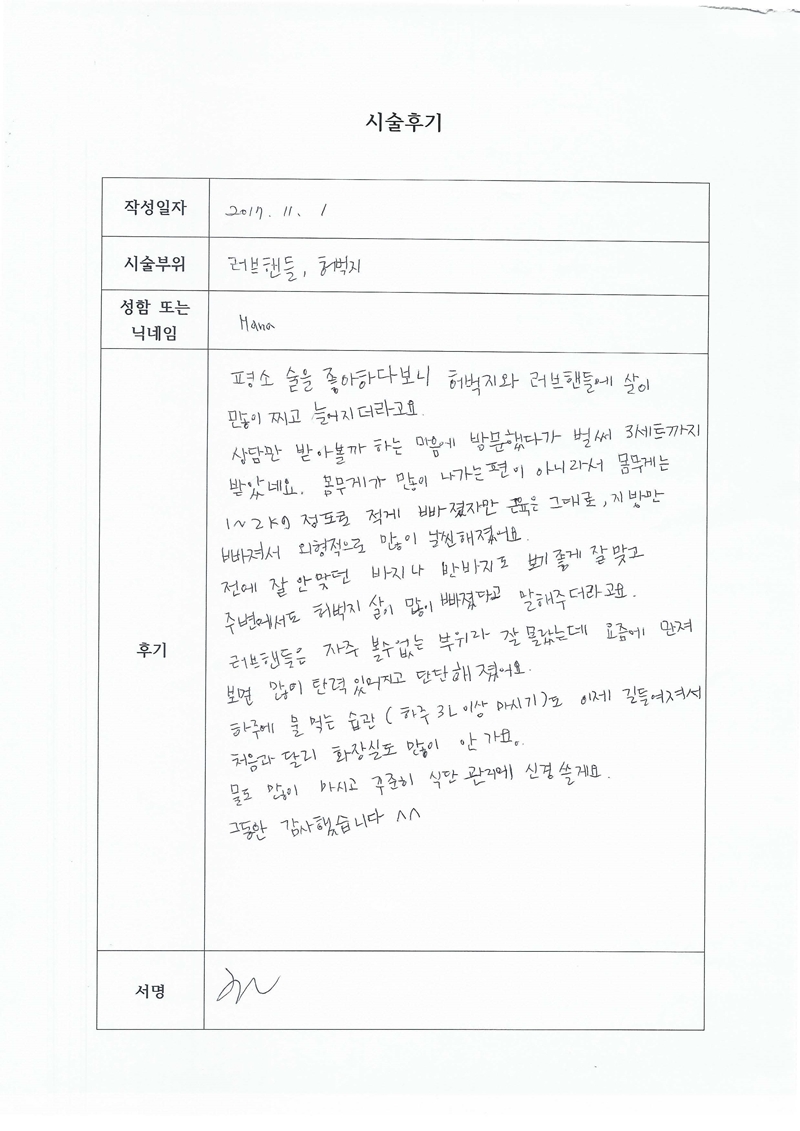 시술후기
작성일자 2017. 11. 1
시술부위 러브핸들, 허벅지
성함 또는
닉네임 Hana
후기
평소 술을 좋아하다보니 허벅지와 러브핸들에 살이
많이 찌고 늘어지더라고요.
상담만 받아볼까 하는 마음에 방문했다가 벌써 3세트까지
받았네요. 몸무게가 많이 나가는편이 아니라서 몸무게는
1~2kg 정도로 적게 빠졌지만 근육은 그대로, 지방만
빠져서 외형적으로 많이 날씬해졌어요.
전에 잘 안맞던 바지나 반바지도 보기 좋게 잘맞고
주변에서도 허벅지 살이 많이 빠졌다고 말해주더라고요.
러브핸들은 자주 볼수없는 부위라 잘 몰랐는데 요즘에 만져
보면 많이 탄력있어지고 단단해졌어요.
하루에 물 먹는 습관 (하루 3L 이상 마시기)도 이제 길들여져서
처음과 달리 화장실도 많이 안 가요.
물도 많이 마시고 꾸준히 식단 관리에 신경 쓸게요.
그동안 감사했습니다 ^^
서명